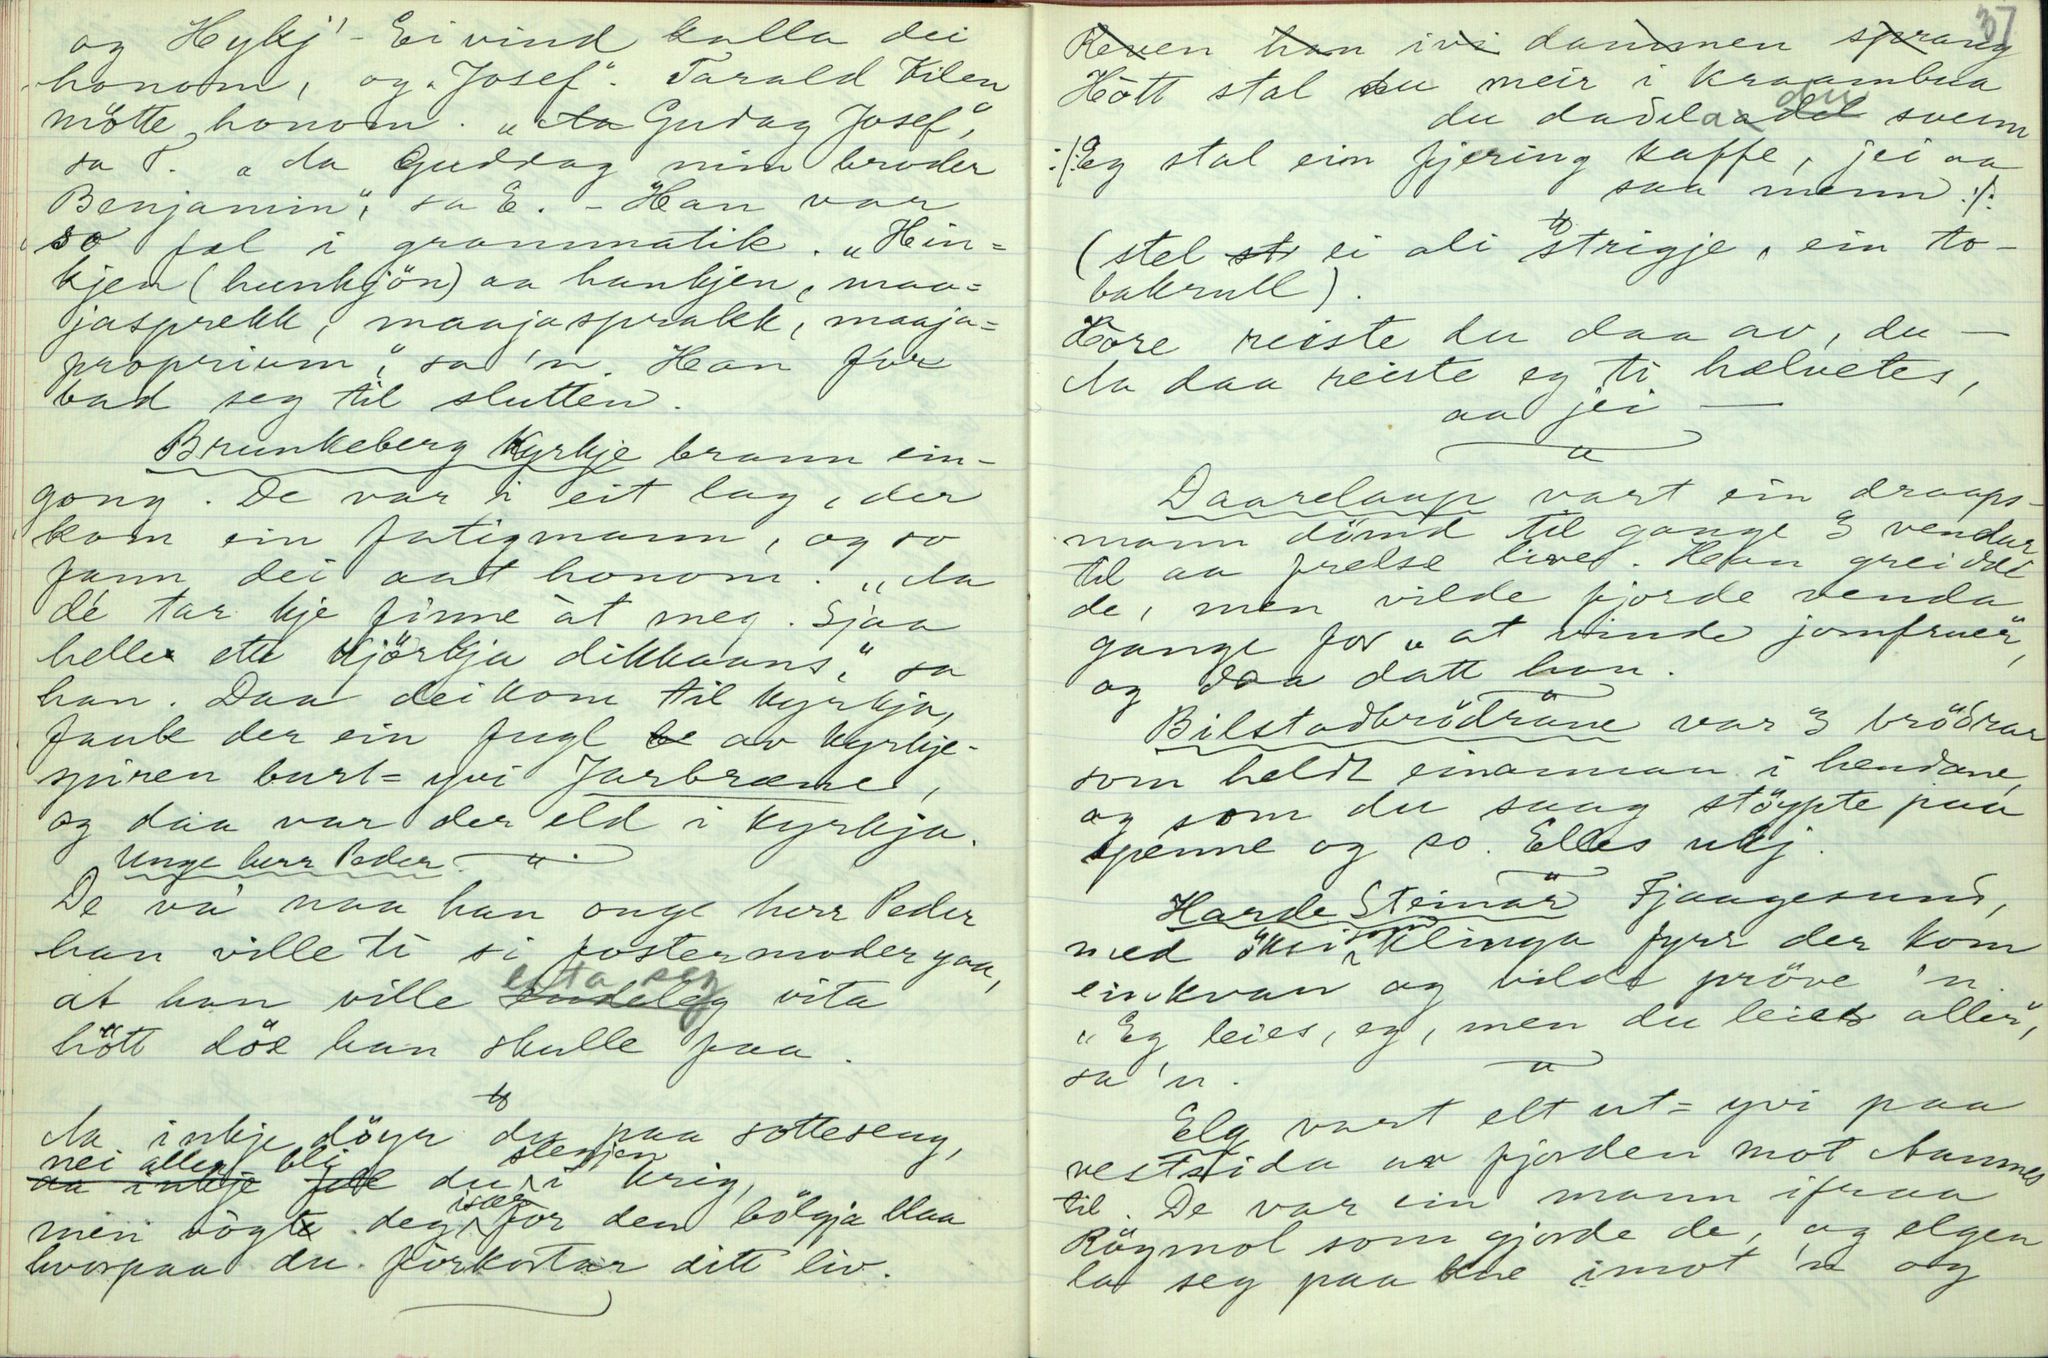 og Hykj'-Eivind kalla dei
honom, og "Josef". Tarald Kilen
mötte honom. "Aa Gudag Josef",
sa T. "Aa Guddag min broder
Benjamin", sa E. - Han var
so fol i grammatik. "Hin=
kjen (hunkjön) aa hankjen, maa=
jasprekk, maajasprakk, maaja=
proprium", sa 'n. Han for
bad seg til slutten.
Brunkeberg Kyrkje brann ein-
gong. De var i eit lag, der
kom ein fatigmann, og so
fann dei aat honom. "Aa
de tar kje finne åt meg. Sjaa
helle ette kjörkja dikkaans," sa
han. Daa dei kom til kyrkja,
fauk der ein fugl av kyrkje-
spiren burt-yvi Jarbræne,
og daa var der eld i kyrkja.
Unge herr Peder
De va naa han onge herr Peder
han ville ti si fostermoder gaa,
at han ville endeleg vita
hött döe han skulle faa.
Aa inkje döyr du paa sotteseng,
nei aller bli slegjen
aa inkje du i krig,
men vögte deg især for den bölgja blaa
hvorpaa du forkortar ditt liv.
37
Reven han ivi dammen sprang
Hött stal du meir i kraambua
du dadelaade du svein
:/: Eg stal ein fjering kaffe, jei aa
saa menn :/:
(stel ei ali strigje, ein to-
bakrull).
Höre reiste du daa av, du —
Aa daa reiste eg ti hælvetes,
aa jei —
Daarelaup vart ein draaps-
mann dömd til gange 3 vendur
til aa frelse live. Han greidde
de, men vilde fjorde venda
gange for "at vinde jomfruer",
og daa datt han.
Bilstadbrödrane var 3 brödrar
som heldt einannan i hendane,
og som du saag stöypte paa
spenne og so. Elles ukj.
Harde Steinar Fjaagesund,
med öksi som klinga fyrr der kom
einkvan og vilde pröve 'n.
"Eg leies, eg, men du leies aller",
sa 'n.
Elg vart elt ut-yvi paa
vestsida av fjorden mot Aamnes
til. De var ein mann ifraa
Röymol som gjorde de, og elgen
la seg paa kne imot 'n og